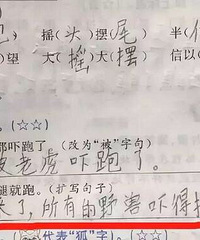 摇(头)摆(尾) 半(
)望 大(摇)大(摆) 信以(
。(☆☆)
都吓跑了。(改为“被”字句)
被老虎吓跑了。
腿就跑。(扩写句子)
来了,所有的野害吓得拔
代表“狐”字)。(☆☆)